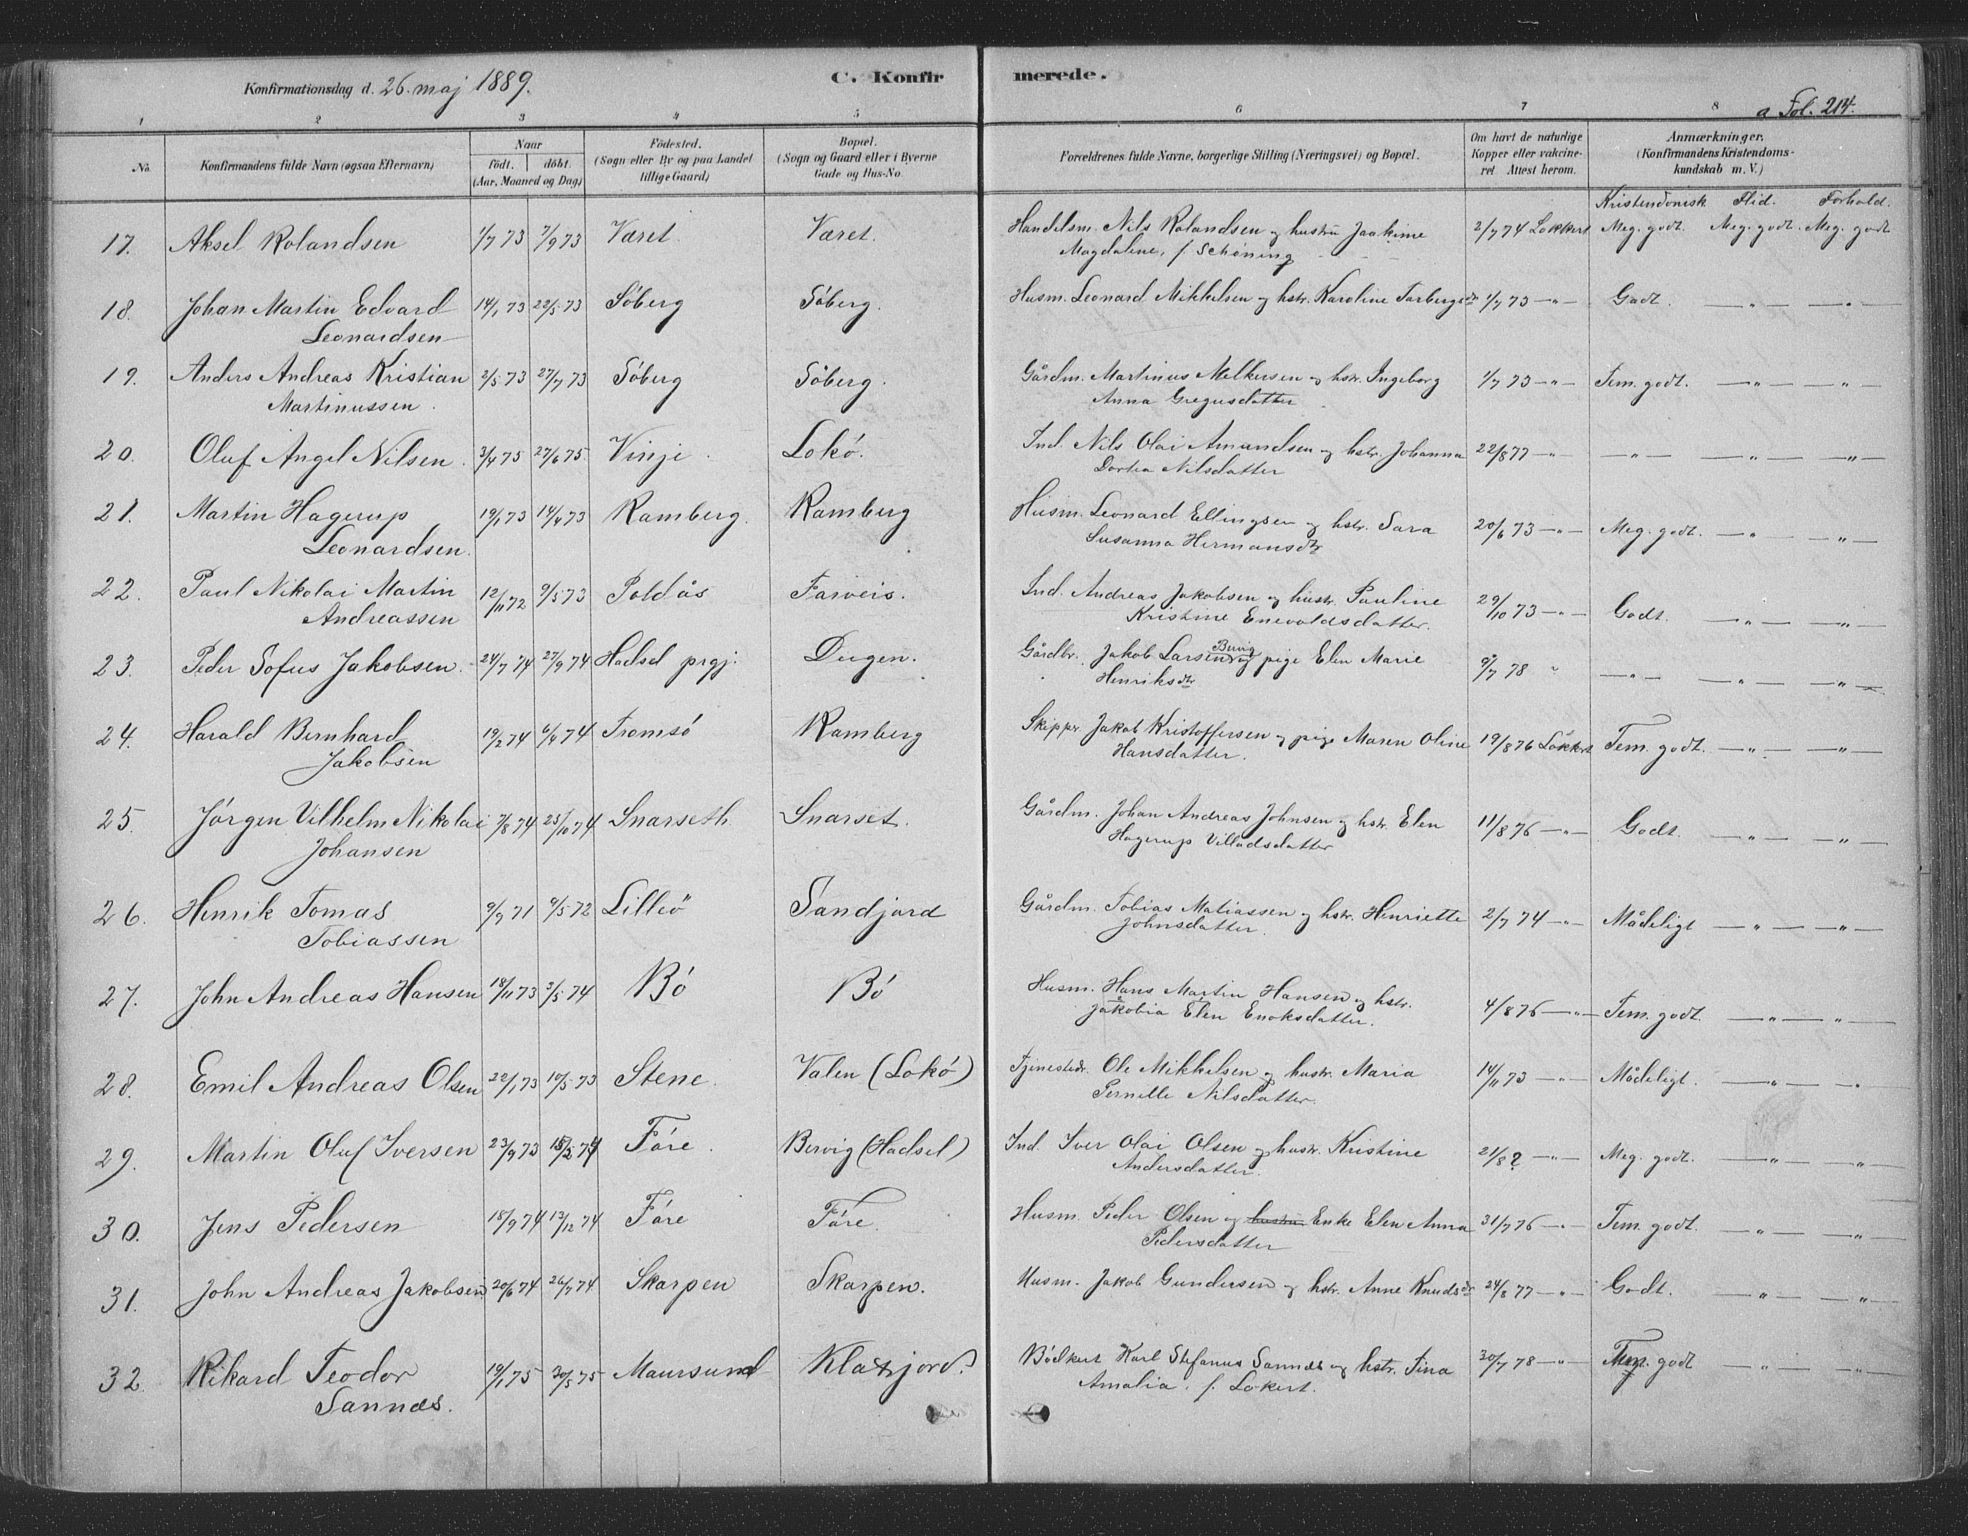 Konfirmationsdag d. 26. maj 1889.
C. Konfirmerede.
a Fol. 214.
1 2 3 4 5 6 7 8
No. Konfirmandens fulde Navn (ogsaa Efternavn) Naar født. døbt. (Aar, Maaned og Dag) Fødested. (Sogn eller By og paa Landet tillige Gaard) Bopæl. (Sogn og Gaard eller i Byerne Gade og Hus-No. Forældrenes fulde Navne, borgerlige Stilling (Næringsvei) og Bopæl. Om havt de naturlige Kopper eller vakcineret. Attest herom. Anmærkninger. (Konfirmandens Kristendomskundskab m. V.)
Kristendomsk Flid. Forhold.
17. Aksel Rolandsen 1/7 73 7/9 73 Været. Været. Handelsm. Nils Rolandsen og hustru Jaakime 2/7 74 Lökkert Meg. godt. Meg. godt. Meg. godt
Magdalene, f. Schøning
18. Johan Martin Edvard 14/1 73 22/5 73 Söberg Söberg. Husm. Leonard Mikkelsen og hstr. Karoline Torbergsdtr 1/7 73 —"— Godt. —"— —"—
Leonardsen
19. Anders Andreas Kristian 2/5 73 27/7 73 Söberg Söberg. Gårdm. Martinus Melkersen og hstr. Ingeborg 1/7 73 —"— Tem. godt. —"— —"—
Martinussen. Anna Gregusdatter
20. Oluf Angel Nilsen. 3/4 75 27/6 75 Vinje. Lokö. Ind. Nils Olai Amundsen og hstr. Johanna 22/8 77 —"— —"— —"— —"—
Dortea Nilsdatter
21. Martin Hagerup 19/1 73 14/4 73 Ramberg. Ramberg Husm. Leonard Ellingsen og hstr. Sara 20/6 73 —"— Meg. godt. —"— —"—
Leonardsen. Susanna Hermansdtr
22. Paul Nikolai Martin 12/11 72 9/5 73 Poldås Farveis. Ind. Andreas Jakobsen og hustr. Pauline 29/10 73 —"— Godt. —"— —"—
Andreassen Kristine Enevoldsdatter.
23. Peder Sofus Jakobsen. 24/7 74 27/9 74 Hadsel prgj. Dugen. Gårdbr. Jakob Larsen Berig og pige Elen Marie 9/7 78 " —"— —"— —"—
Henriksdtr
24. Harald Bernhard 19/2 74 6/4 74 Tromsö Ramberg Skipper Jakob Kristoffersen og pige Maren Oline 19/8 76 Lökkert Tem. godt. —"— —"—
Jakobsen Hansdatter.
25. Jørgen Vilhelm Nikolai 7/8 74 25/10 74 Snarseth Snarset. Gårdm. Johan Andreas Johnsen og hstr. Elen 11/8 76 —"— Godt. —"— —"—
Johansen Hagerup Villadsdatter
26. Henrik Tomas 9/9 71 9/5 72 Lilleö Sandjord Gårdm. Tobias Matiassen og hstr. Henriette 2/7 74 —"— Mådeligt —"— —"—
Tobiassen Johnsdatter.
27. John Andreas Hansen 18/11 73 3/5 74 Bö Bö Husm. Hans Martin Hansen og hstr. 4/8 76 —"— Tem. godt. —"— —"—
Jakobia Elen Enoksdatter.
28. Emil Andreas Olsen 22/1 73 10/5 73 Stene. Valen (Lokö) Tjenestedr. Ole Mikkelsen og hustr. Maria 14/11 73 —"— Mådeligt. —"— —"
Pernelle Nilsdatter.
29. Martin Oluf Iversen 23/9 73 15/2 74 Före. Bervig (Hadsel) Ind. Iver Olai Olsen og hustr. Kristine 21/8 ? —"— Meg. godt. —"— —"—
Andersdatter.
30. Jens Pedersen 18/9 74 13/12 74 Före Före. Husm. Peder Olsen og hustru Enke Elen Anna 31/7 76 —"— Tem. godt. " —"
Pedersdatter
31. John Andreas Jakobsen 20/6 74 26/7 74 Skarpen Skarpen. Husm. Jakob Gundersen og hstr. Anne Knudsdtr 24/8 77 —"— Godt. —"— —"—
32. Rikard Teodor 19/1 75 30/5 75 Maursund Klaksjord. Bödkert Karl Stefanus Sannes og hstr. Tina 30/7 78 —"— Tem. godt " —"—
Sannes. Amalia, f. Lokert.